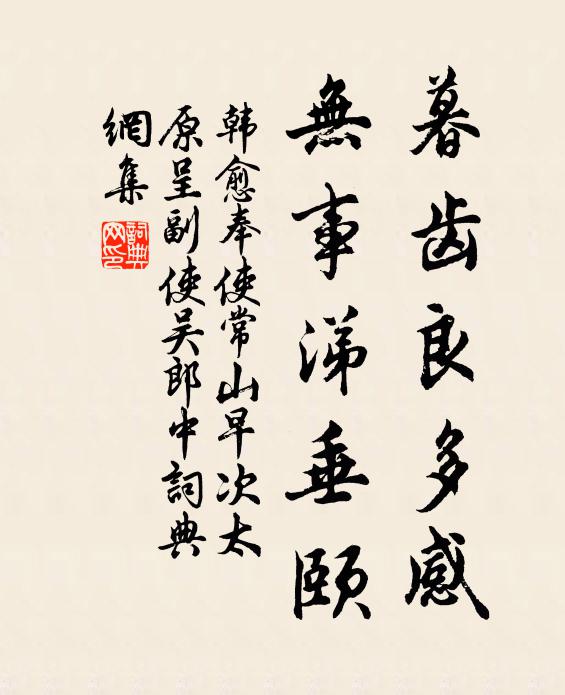 暮齿良多感
無事涕垂頤
韩愈奉使常山早次太
原呈副使吴郎中詞典
網集
詞典
网印